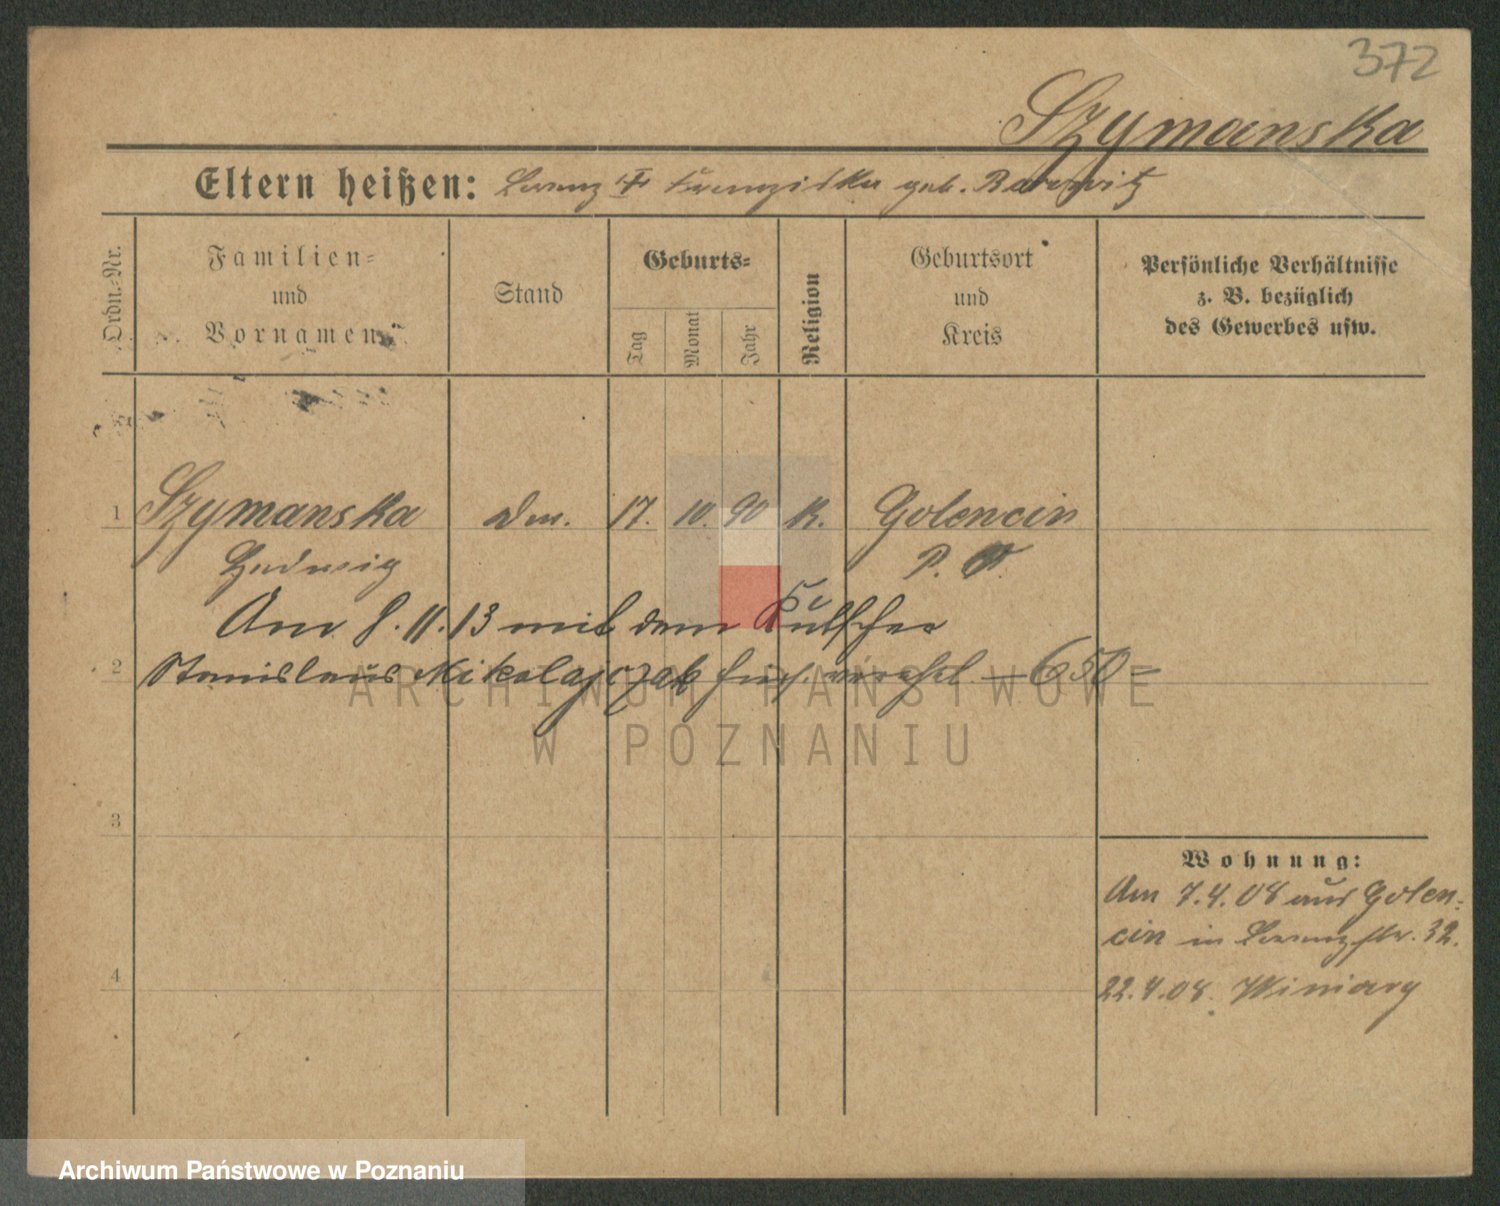 372
Szymanska
Eltern heißen: Lorenz u. Franziska geb.
Ordn.-Nr.
Familien-
und
Vornamen
Stand
Geburts-
Tag
Monat
Jahr
Religion
Geburtsort
und
Kreis
Persönliche Verhältnisse
z. B. bezüglich
des Gewerbes usw.
1 Szymanska 17. 10. 90 K. Golencin
Hedwig P. O.
Am 8.11.13 mit dem Kutscher
2 Stanislaus Mikolajczak hier verehel. – 650 –
ARCHIWUM PAŃSTWOWE
W POZNANIU
3
Wohnung:
Am 7.4.08 aus Golen-
cin in Lorenzstr. 32.
4
22.4.08 Winiary
Archiwum Państwowe w Poznaniu